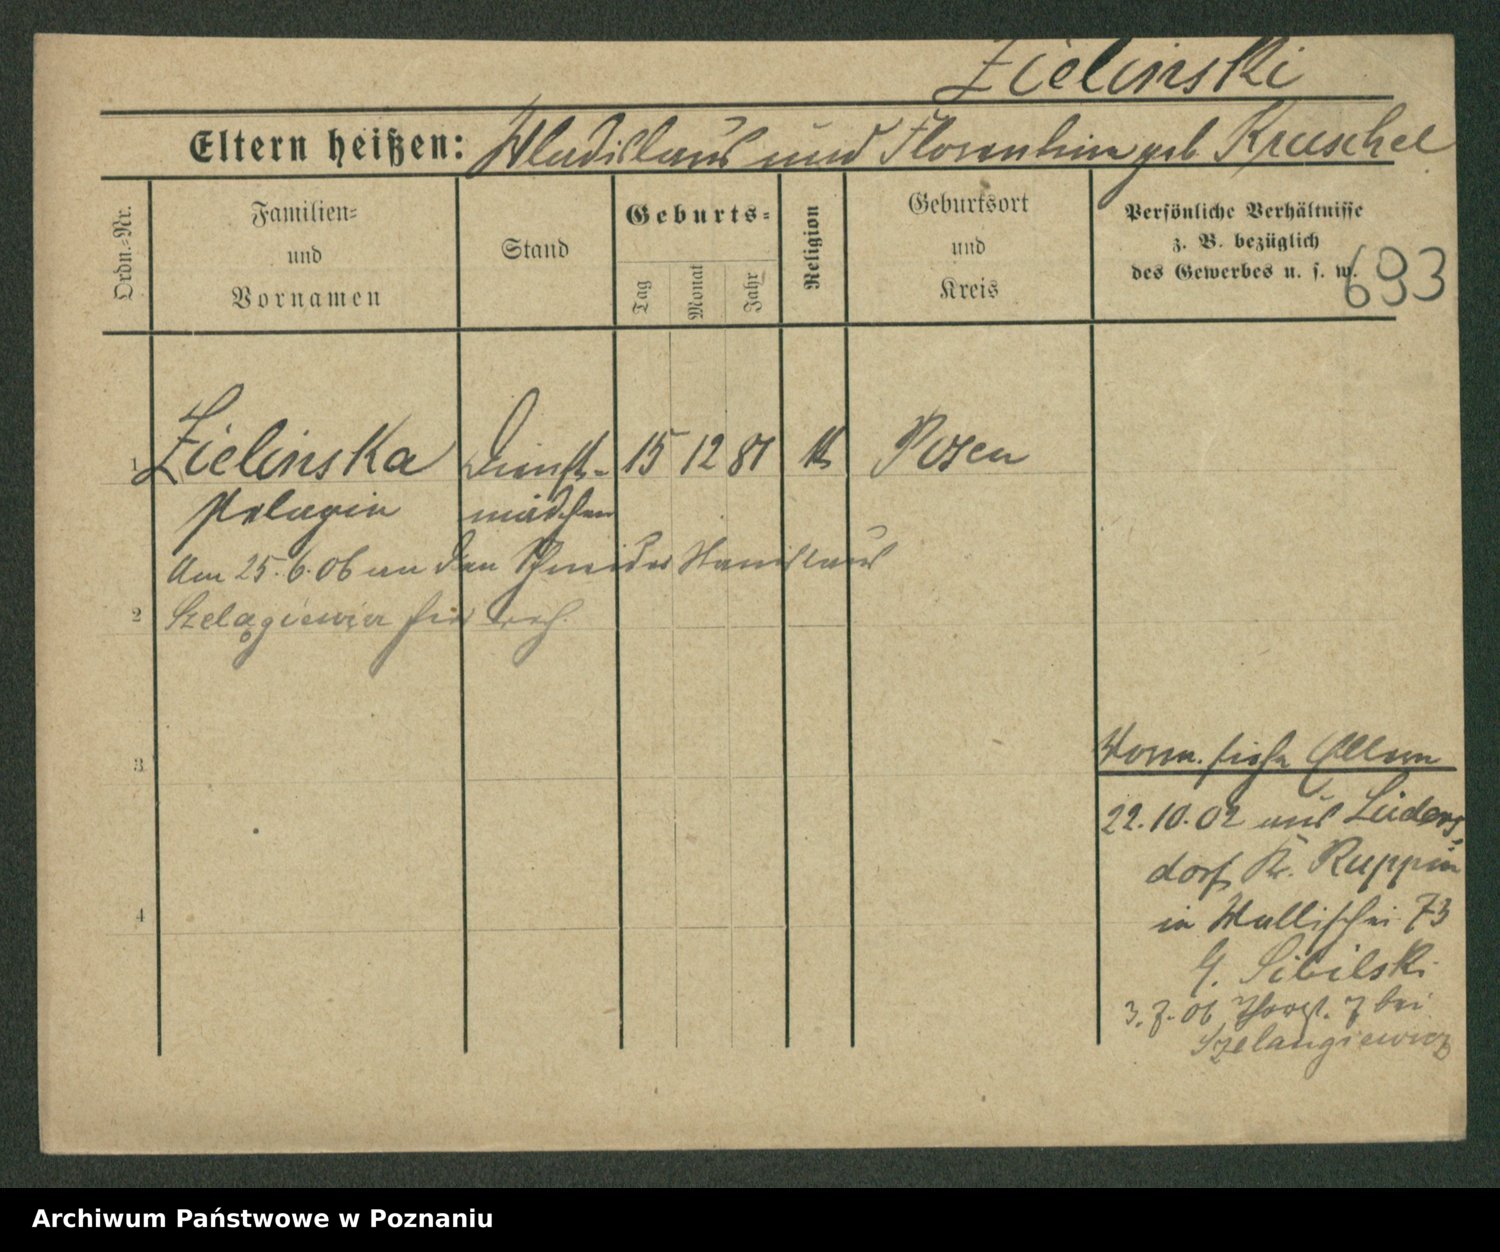 Zielinski
Eltern heißen: Wladislaus und Florentine geb Kruschel
Ordn.-Nr.
Familien-
und
Vornamen
Stand
Geburts-
Tag
Monat
Jahr
Religion
Geburtsort
und
Kreis
Persönliche Verhältnisse
z. B. bezüglich
des Gewerbes u. s. w.
693
1 Zielinska Dienst- 15 12 81 k Posen
Pelagia mädchen
Am 25.6.06 an den Schneider Stanislaus
2 hier verh.
3
Vorm. siehe Eltern
22.10.02 aus Lüders-
dorf Kr. Ruppin
4
in Wallischei 73
Sibilski
3.7.06 bei
Szelangiewicz
Archiwum Państwowe w Poznaniu